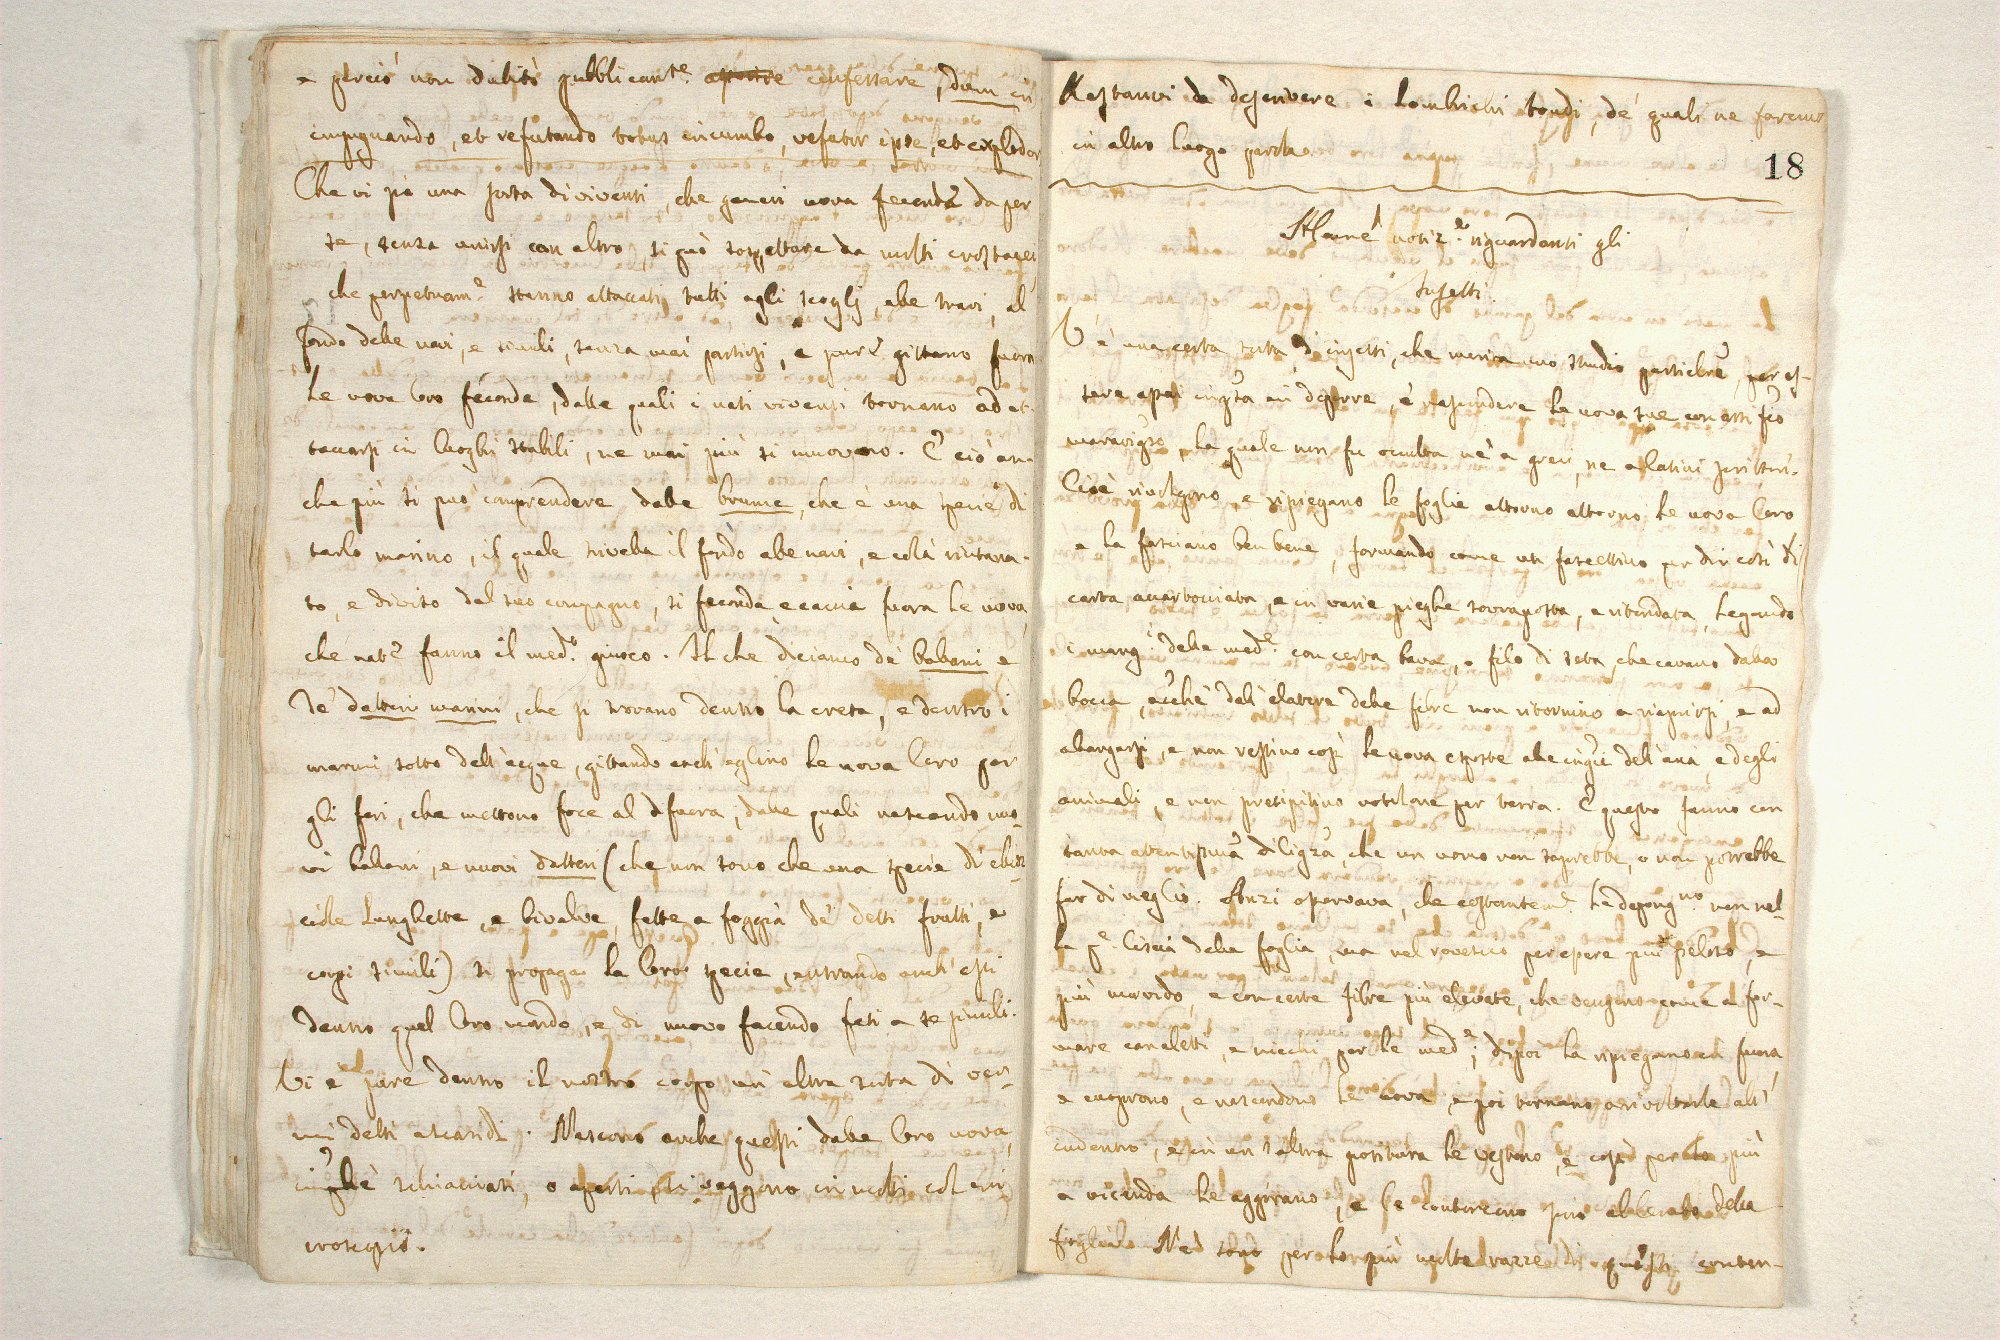 e perciò non dubitò pubblicam.te confessare, dum in
impugnando, et refutando totus incumbo, refutor ipse, et explodor
Che vi sia una sorta di viventi, che generi uova feconde da per
se, senza unirsi con altro, si può sospettare da molti crostacei
che perpetuam.e stanno attaccati tutti agli scogli, alle travi, al
fondo delle navi, e simili, senza mai partirsi, e pure gittano fuora
le uova loro feconde, dalle quali i nati viventi tornano ad at-
taccarsi in luoghi stabili, ne mai più si muovono. E ciò an-
che più si può comprendere dalle brume, che è una specie di
tarlo marino, il quale trivella il fondo alle navi, e colà rintana-
to, e diviso dal suo compagno, si feconda, e caccia fuora le uova,
che nate fanno il med.o giuoco. Il che diciamo de' ballani e
de' datteri marini, che si trovano dentro la creta, e dentro i
marmi sotto dell'acque, gittando anch'eglino le uova loro per
gli fori, che mettono foce al di fuora, dalle quali nascendo nuo-
vi ballani, e nuovi datteri (che non sono che una specie di chioc-
ciole lunghette, e bivalve, fatte a foggia de' detti frutti, e
corpi simili) si propaga la loro specie, entrando anch'essi
dentro quel loro mondo, e di nuovo facendo feti a se simili.
Vi è pure dentro il nostro corpo un'altra sorta di ver-
mi detti ascaridi. Nascono anche questi dalle loro uova,
schiacciati, o aperti, si veggono in molti col mi-
croscopio.
Restanvi da descrivere i lombrichi tondi, de' quali ne faremo
in altro luogo parola
18
Alcune notiz.e riguardanti gli
Insetti.
V'è una certa sorta d'insetti, che merita uno studio particolare, per
maraviglioso, la quale non fu occulta nè a greci, ne a latini scrittori.
Cioè rivolgono, e ripiegano le foglie attorno attorno le uova loro
e la fasciano ben bene, formando come un fascettino per dir così di
carta accartocciata, e in varie pieghe sovraposta, e ritondata, legando
i marg.i delle med.e con certa bava, o filo di seta, che cavano dalla
bocca, acchè dall'elatere delle fibre non ritornino a riaprirsi, e ad
allargarsi, e non restino così le uova esposte alle ingiurie dell'aria, e degli
animali, e non precipitino per terra. E questo fanno con
tanta attentissima diligenza, che un uomo non saprebbe, o non potrebbe
far di meglio. Anzi osservava, che costantem.e le depongono non nel-
la p.e liscia della foglia, ma nel rovescio per essere più peloso, e
più morvido, e con certe fibre più elevate, che vengono come a for-
mare canaletti, e nicchi per le med.e; dipoi la ripiegano in fuora,
e cuoprono, e nascondono le uova, e poi tornano a rivoltarle all'
indentro, e in un'altra positura le vestono, e così per lo più
a vicenda le aggirano, e le contorcono
foglia. Ned sono per lo più molte razze di questi conten-